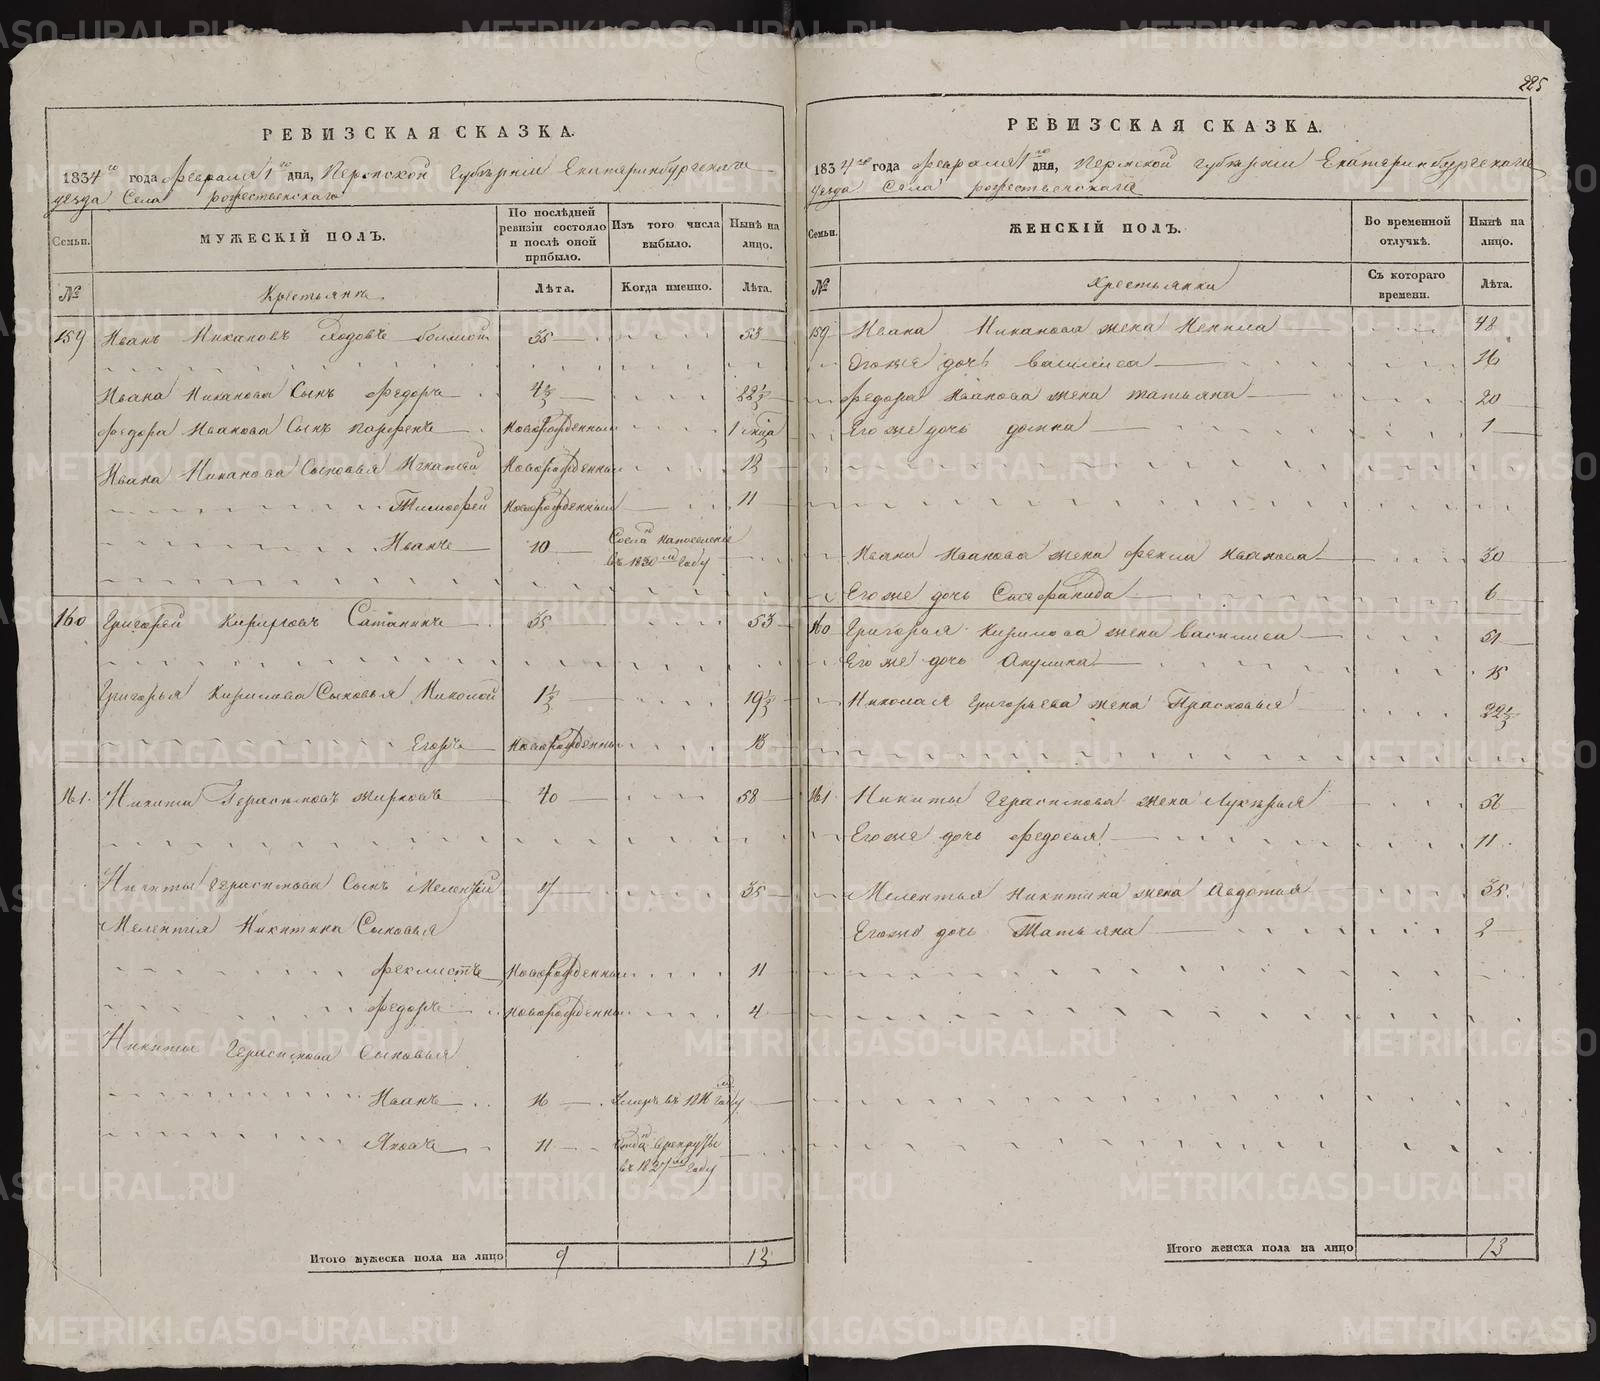 225
РЕВИЗСКАЯ СКАЗКА.
1834 го года Февраля 1 го дня, Пермской Губернiи Екатеринбургскаго
уезда Села рожественскаго
Семьи. МУЖЕСКIЙ ПОЛЪ. По послѣдней ревизiи состояло и послѣ оной прибыло. Изъ того числа выбыло. Нынѣ на лицо.
№ Крестьянѣ Лѣта. Когда именно. Лѣта.
159 Иванъ Никановъ большой 35 53
Ивана Никанова Сынъ Федоръ 4½ 22½
Федора Иванова Сынъ Парфенъ Новорожденный 1
Ивана Никанова Сыновья Новорожденный 12
Тимофей Новорожденный 11
Иванъ 10 на поселенiе
въ 1830 м году
160 Григорей Кириловъ Сатанинъ 35 53
Григорья Кирилова Сыновья Николай 1½ 19½
Егоръ Новорожденны
161 Никита Герасимовъ жирковъ 40 58
Никиты Герасимова Сынъ Мелентей 17 35
Мелентiя Никитина Сыновья
Феклистъ Новорожденны 11
Федоръ Новорожденны 4
Никиты Герасимова Сыновья
Иванъ 16 Умеръ въ году
Яковъ 11 в рекруты
въ 1827 м году
Итого мужеска пола на лицо 9 12
РЕВИЗСКАЯ СКАЗКА.
1834 го года Февраля 1 го дня, Пермской губернiи Екатеринбургскаго
уезда Села рожественскаго
Семьи. ЖЕНСКIЙ ПОЛЪ. Во временной отлучкѣ. Нынѣ на лицо.
№ Крестьянки Съ котораго времени. Лѣта.
159 Ивана Никанова жена Ненила 48
Его же дочь Василиса 16
Федора Иванова жена татьяна 20
Его же дочь домна 1
Ивана Иванова жена Фекла Иванова 30
Его же дочь 6
160 Григорья Кирилова жена Василиса 51
Его же дочь Акулина 15
Николая Григорьева жена Прасковья 22½
161 Никиты Герасимова жена Лукерья 56
Его же дочь Федосья 11
Мелентья Никитина жена Авдотья 35
Его же дочь Татьяна 2
Итого женска пола на лицо 13
METRIKI.GASO-URAL.RU